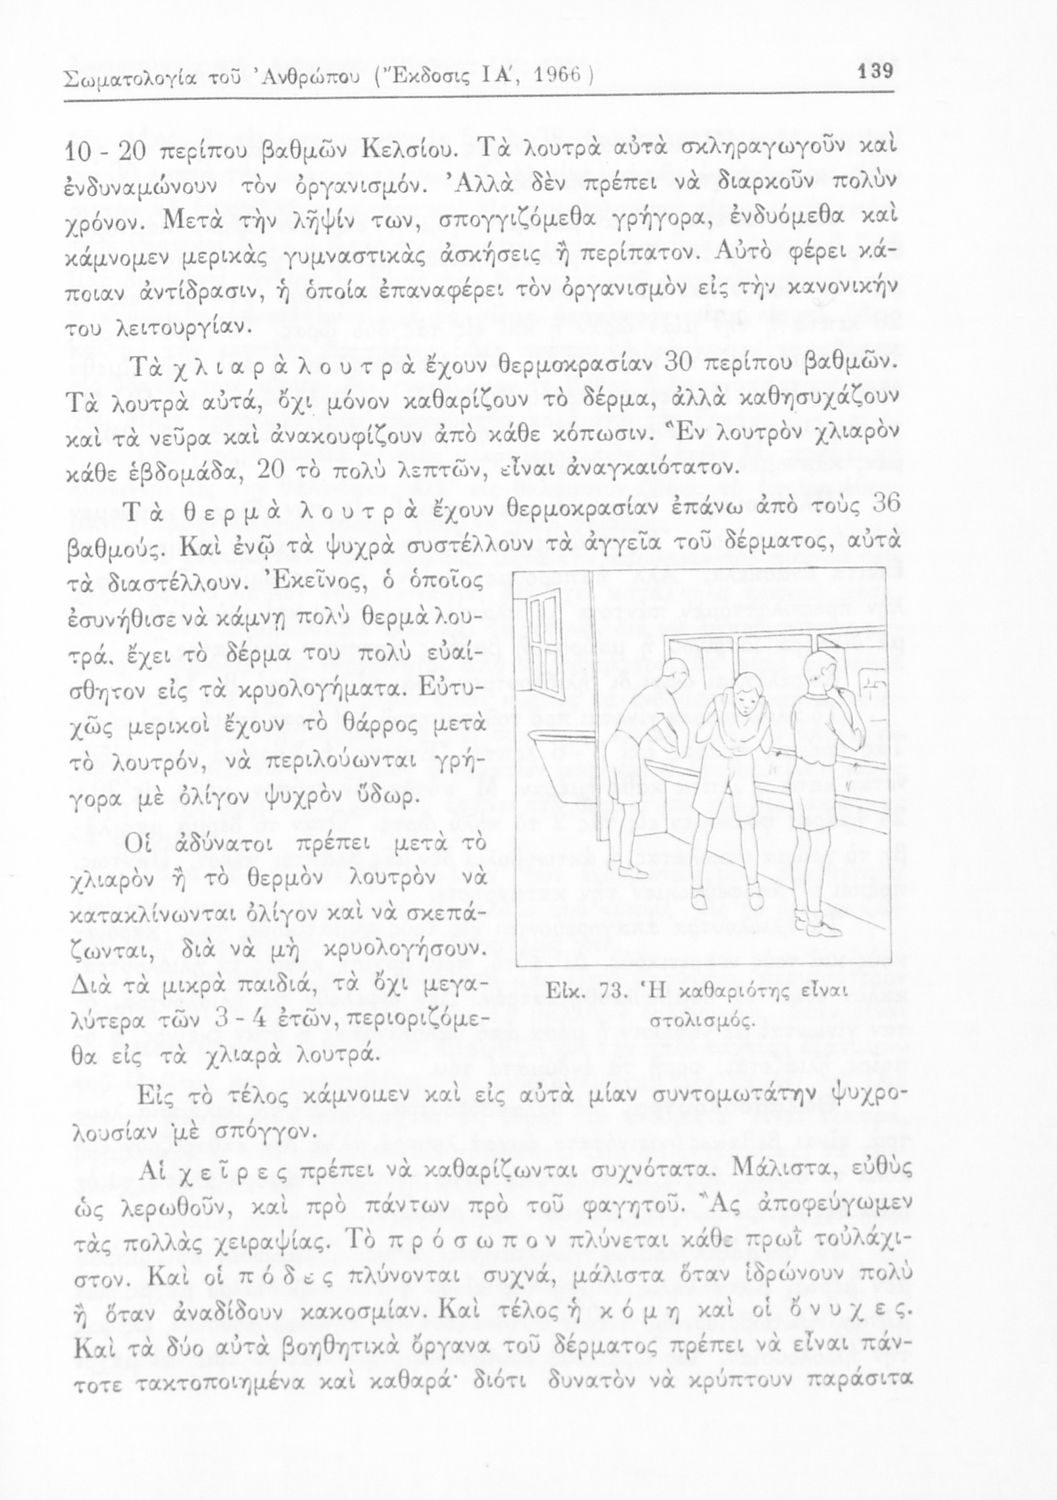 Σωματολογία τοῦ Ἀνθρώπου (Ἔκδοσις ΙΑ΄, 1966)
139
10 - 20 περίπου βαθμῶν Κελσίου. Τὰ λουτρὰ αὐτὰ σκληραγωγοῦν καὶ
ἐνδυναμώνουν τὸν ὀργανισμόν. Ἀλλὰ δὲν πρέπει νὰ διαρκοῦν πολὺν
χρόνον. Μετὰ τὴν λῆψίν των, σπογγιζόμεθα γρήγορα, ἐνδυόμεθα καὶ
κάμνομεν μερικὰς γυμναστικὰς ἀσκήσεις ἢ περίπατον. Αὐτὸ φέρει κά-
ποιαν ἀντίδρασιν, ἡ ὁποία ἐπαναφέρει τὸν ὀργανισμὸν εἰς τὴν κανονικήν
του λειτουργίαν.
Τὰ χλιαρὰ λουτρὰ ἔχουν θερμοκρασίαν 30 περίπου βαθμῶν.
Τὰ λουτρὰ αὐτά, ὄχι μόνον καθαρίζουν τὸ δέρμα, ἀλλὰ καθησυχάζουν
καὶ τὰ νεῦρα καὶ ἀνακουφίζουν ἀπὸ κάθε κόπωσιν. Ἓν λουτρὸν χλιαρὸν
κάθε ἑβδομάδα, 20 τὸ πολὺ λεπτῶν, εἶναι ἀναγκαιότατον.
Τὰ θερμὰ λουτρὰ ἔχουν θερμοκρασίαν ἐπάνω ἀπὸ τοὺς 36
βαθμούς. Καὶ ἐνῷ τὰ ψυχρὰ συστέλλουν τὰ ἀγγεῖα τοῦ δέρματος, αὐτὰ
τὰ διαστέλλουν. Ἐκεῖνος, ὁ ὁποῖος
ἐσυνήθισε νὰ κάμνῃ πολὺ θερμὰ λου-
τρά, ἔχει τὸ δέρμα του πολὺ εὐαί-
σθητον εἰς τὰ κρυολογήματα. Εὐτυ-
χῶς μερικοὶ ἔχουν τὸ θάρρος μετὰ
τὸ λουτρόν, νὰ περιλούωνται γρή-
γορα μὲ ὀλίγον ψυχρὸν ὕδωρ.
Οἱ ἀδύνατοι πρέπει μετὰ τὸ
χλιαρὸν ἢ τὸ θερμὸν λουτρὸν νὰ
κατακλίνωνται ὀλίγον καὶ νὰ σκεπά-
ζωνται, διὰ νὰ μὴ κρυολογήσουν.
Διὰ τὰ μικρὰ παιδιά, τὰ ὄχι μεγα-
λύτερα τῶν 3 - 4 ἐτῶν, περιοριζόμε-
θα εἰς τὰ χλιαρὰ λουτρά.
Εἰκ. 73. Ἡ καθαριότης εἶναι
στολισμός.
Εἰς τὸ τέλος κάμνομεν καὶ εἰς αὐτὰ μίαν συντομωτάτην ψυχρο-
λουσίαν μὲ σπόγγον.
Αἱ χεῖρες πρέπει νὰ καθαρίζωνται συχνότατα. Μάλιστα, εὐθὺς
ὡς λερωθοῦν, καὶ πρὸ πάντων πρὸ τοῦ φαγητοῦ. Ἂς ἀποφεύγωμεν
τὰς πολλὰς χειραψίας. Τὸ πρόσωπον πλύνεται κάθε πρωῒ τοὐλάχι-
στον. Καὶ οἱ πόδες πλύνονται συχνά, μάλιστα ὅταν ἱδρώνουν πολὺ
ἢ ὅταν ἀναδίδουν κακοσμίαν. Καὶ τέλος ἡ κόμη καὶ οἱ ὄνυχες.
Καὶ τὰ δύο αὐτὰ βοηθητικὰ ὄργανα τοῦ δέρματος πρέπει νὰ εἶναι πάν-
τοτε τακτοποιημένα καὶ καθαρά· διότι δυνατὸν νὰ κρύπτουν παράσιτα